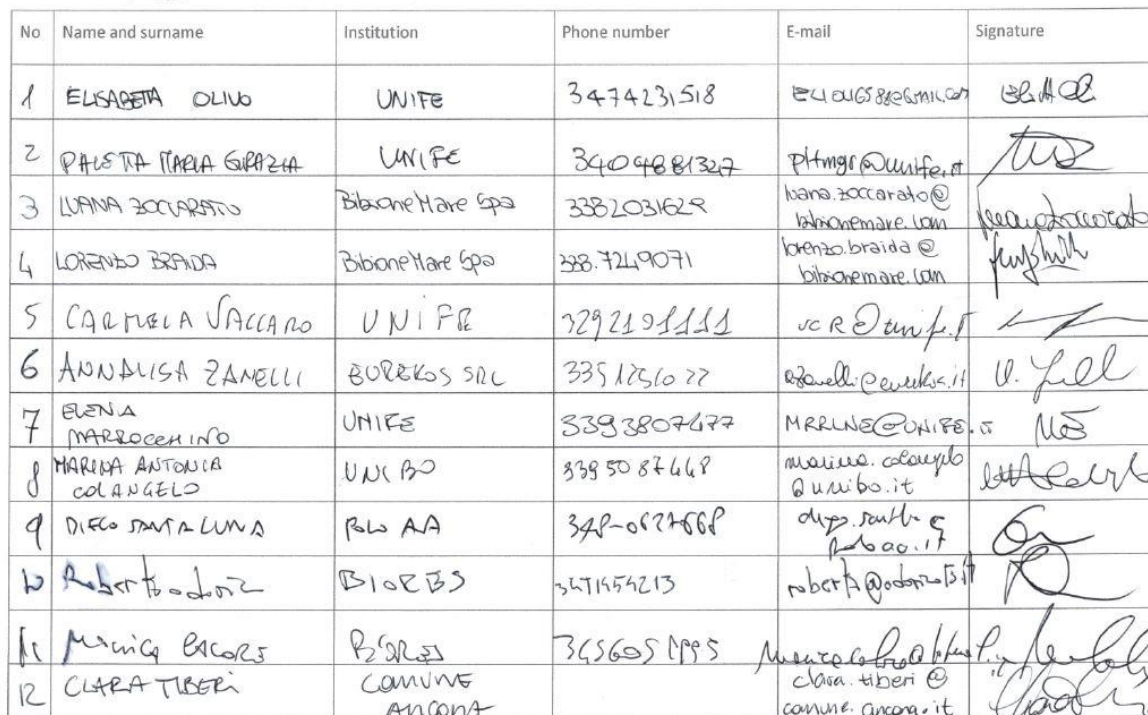 No Name and surname Institution Phone number E-mail Signature
1 ELISABETTA OLIVO UNIFE 3474231518
2 PALETTA MARIA GRAZIA UNIFE 3404881327 pltmgr@unife.it
3 LUANA ZOCCARATO BibioneMare Spa 3382031629 luana.zoccarato@
bibionemare.com
4 LORENZO BRAIDA BibioneMare Spa 388.7249071 lorenzo.braida@
bibionemare.com
5 CARMELA VACCARO UNIFE 3292191111 vcr@unife.it
6 ANNALISA ZANELLI EUREKOS SRL 3351251022 azanelli@eurekos.it
7 ELENA
MARROCCHINO UNIFE 3393807477 MRRLNE@UNIFE.IT
8 MARINA ANTONIA
COLANGELO UNIBO 3395087448 marina.colangelo
@unibo.it
9 DIEGO SANTALUNA POLO AA 348-0627668
10 Roberto odorizzi BIORES 3471454213
11 Monica BIORES
12 CLARA TIBERI COMUNE
ANCONA clara.tiberi@
comune.ancona.it